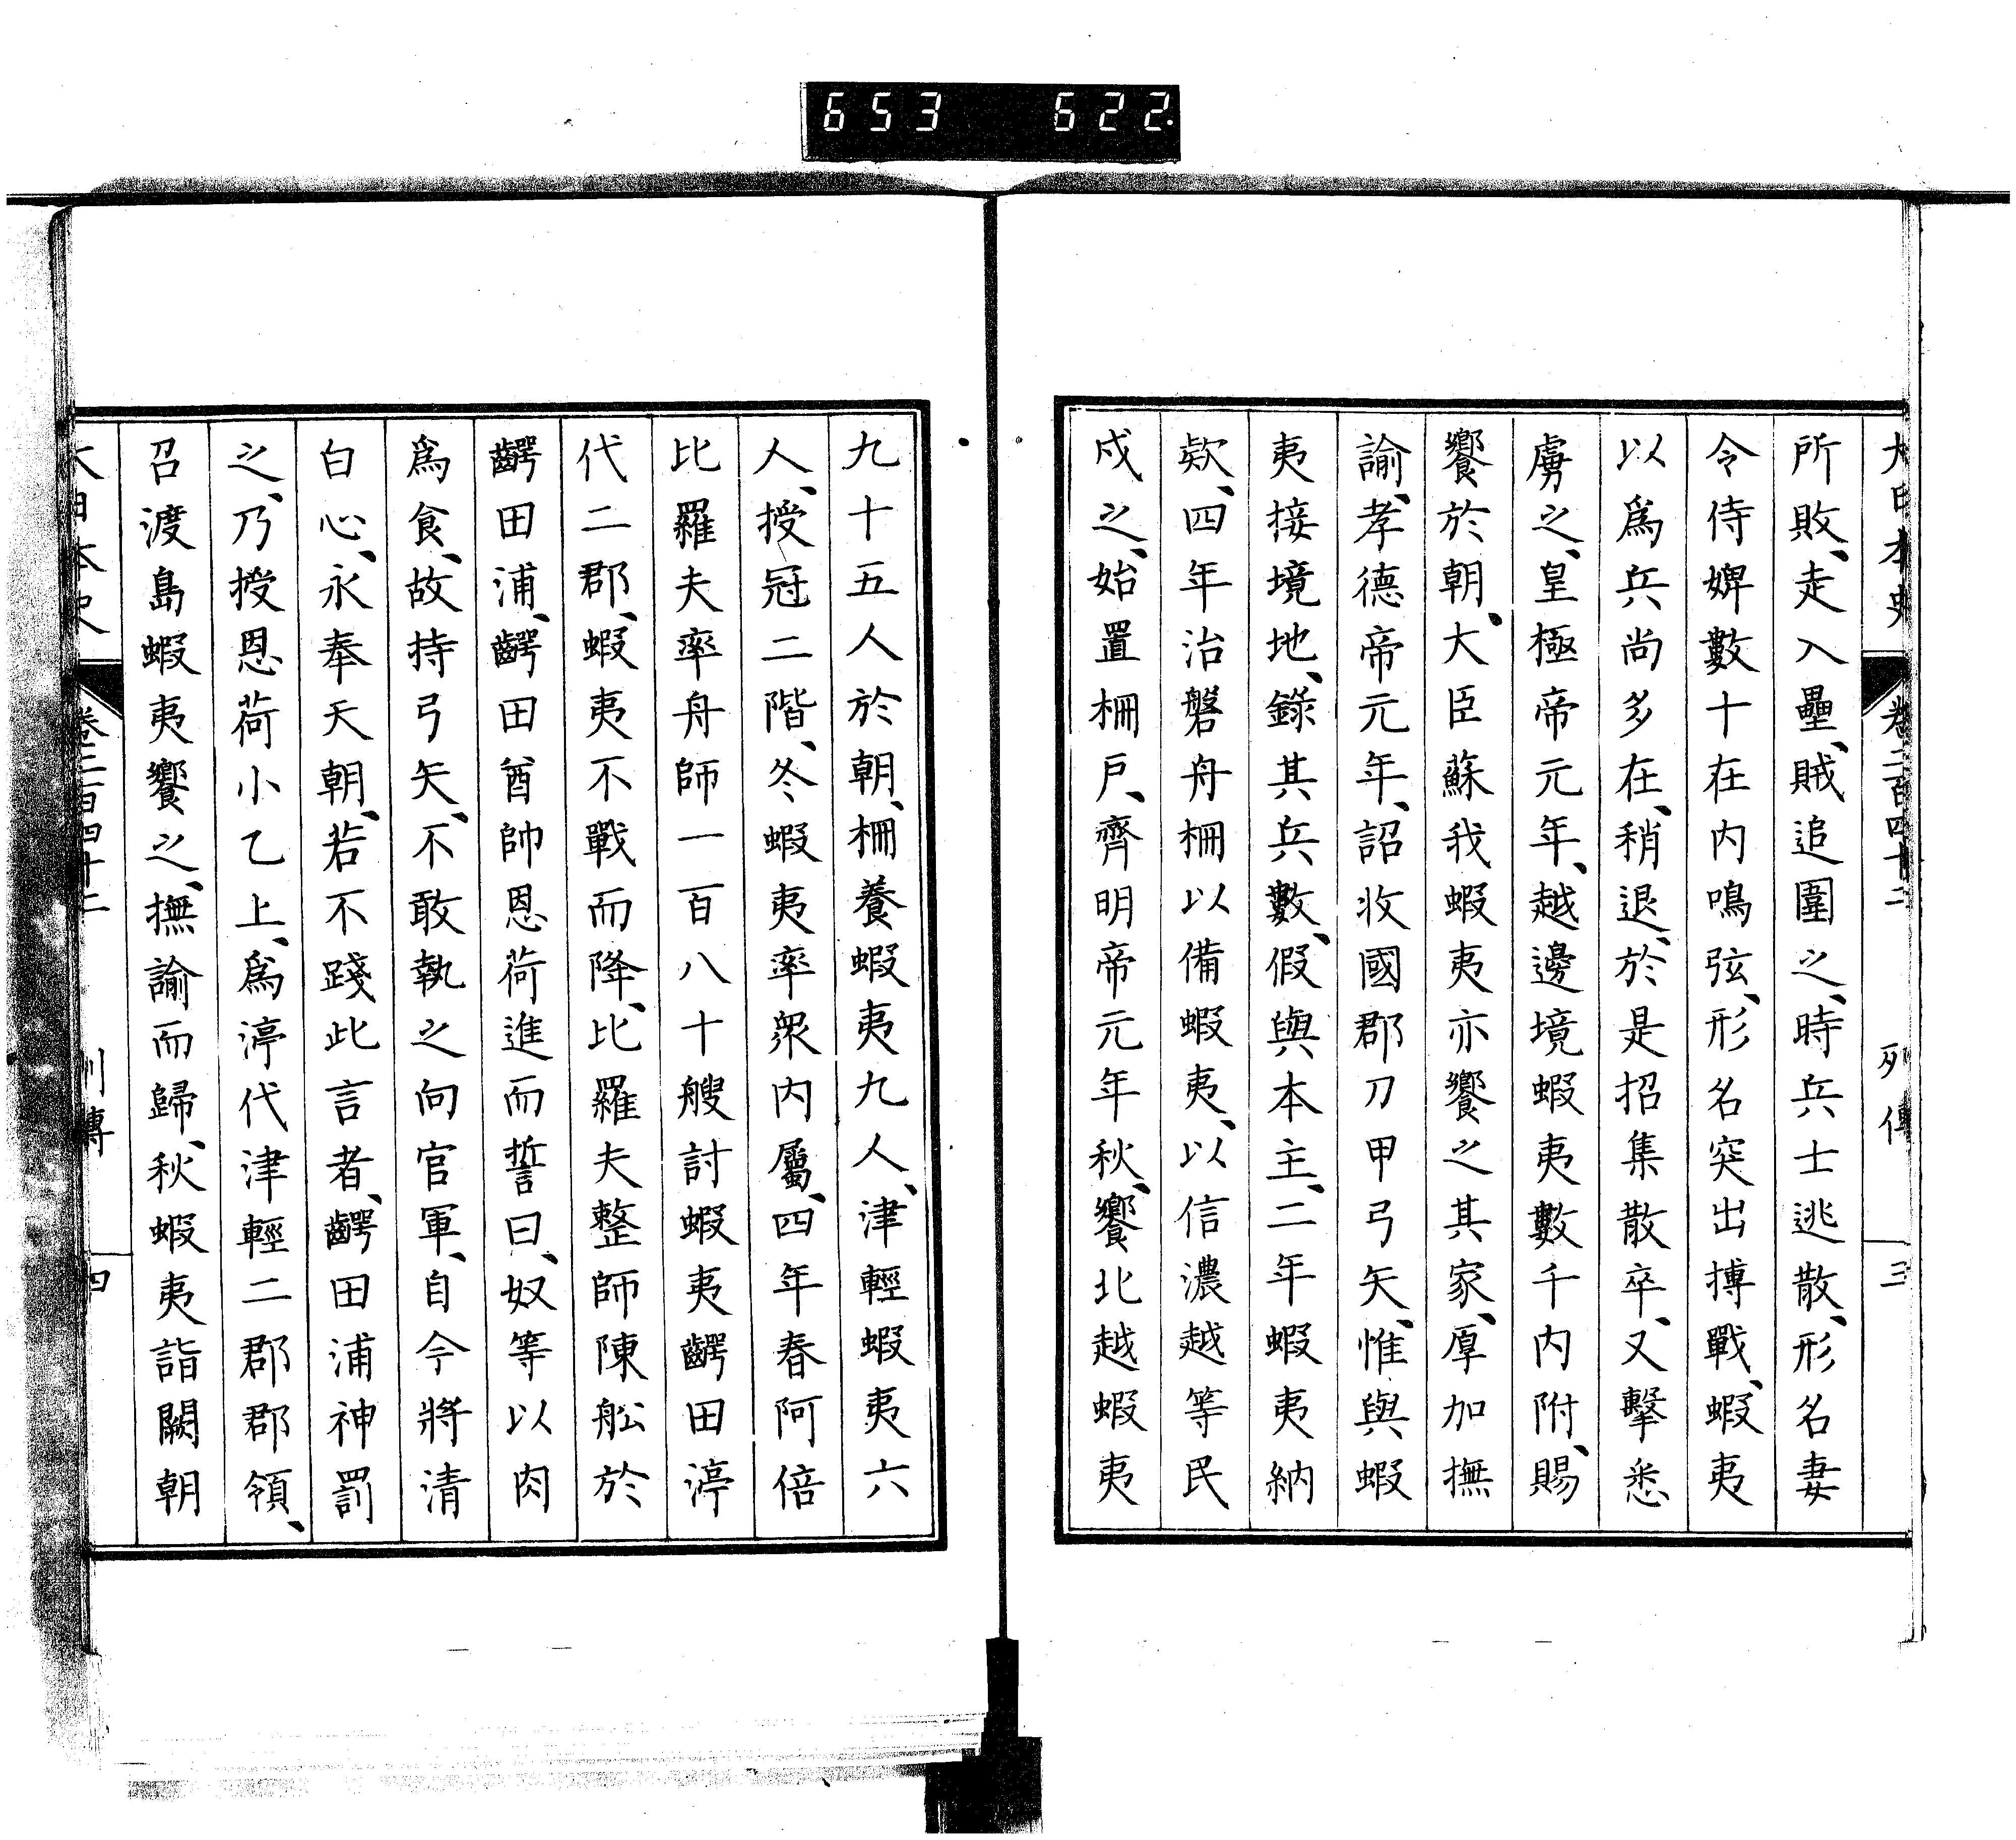 653 622.
大日本史 卷二百四十二 列傳 三
所敗、走入壘、賊追圍之、時兵士逃散、形名妻
令侍婢數十在內鳴弦、形名突出搏戰、蝦夷
以爲兵尚多在、稍退、於是招集散卒、又擊悉
虜之、皇極帝元年、越邊境蝦夷數千內附、賜
饗於朝、大臣蘇我蝦夷亦饗之其家、厚加撫
諭、孝德帝元年、詔收國郡刀甲弓矢、惟與蝦
夷接境地、錄其兵數、假與本主、二年蝦夷納
欵、四年治磐舟柵以備蝦夷、以信濃越等民
戍之、始置柵戶、齊明帝元年秋、饗北越蝦夷
九十五人於朝、柵養蝦夷九人、津輕蝦夷六
人、授冠二階、冬蝦夷率衆內屬、四年春阿倍
比羅夫率舟師一百八十艘討蝦夷齶田渟
代二郡、蝦夷不戰而降、比羅夫整師陳舩於
齶田浦、齶田酋帥恩荷進而誓曰、奴等以肉
爲食、故持弓矢、不敢執之向官軍、自今將清
白心、永奉天朝、若不踐此言者、齶田浦神罰
之、乃授恩荷小乙上、爲渟代津輕二郡郡領、
召渡島蝦夷饗之、撫諭而歸、秋蝦夷詣闕朝
大日本史 卷二百四十二 列傳 四